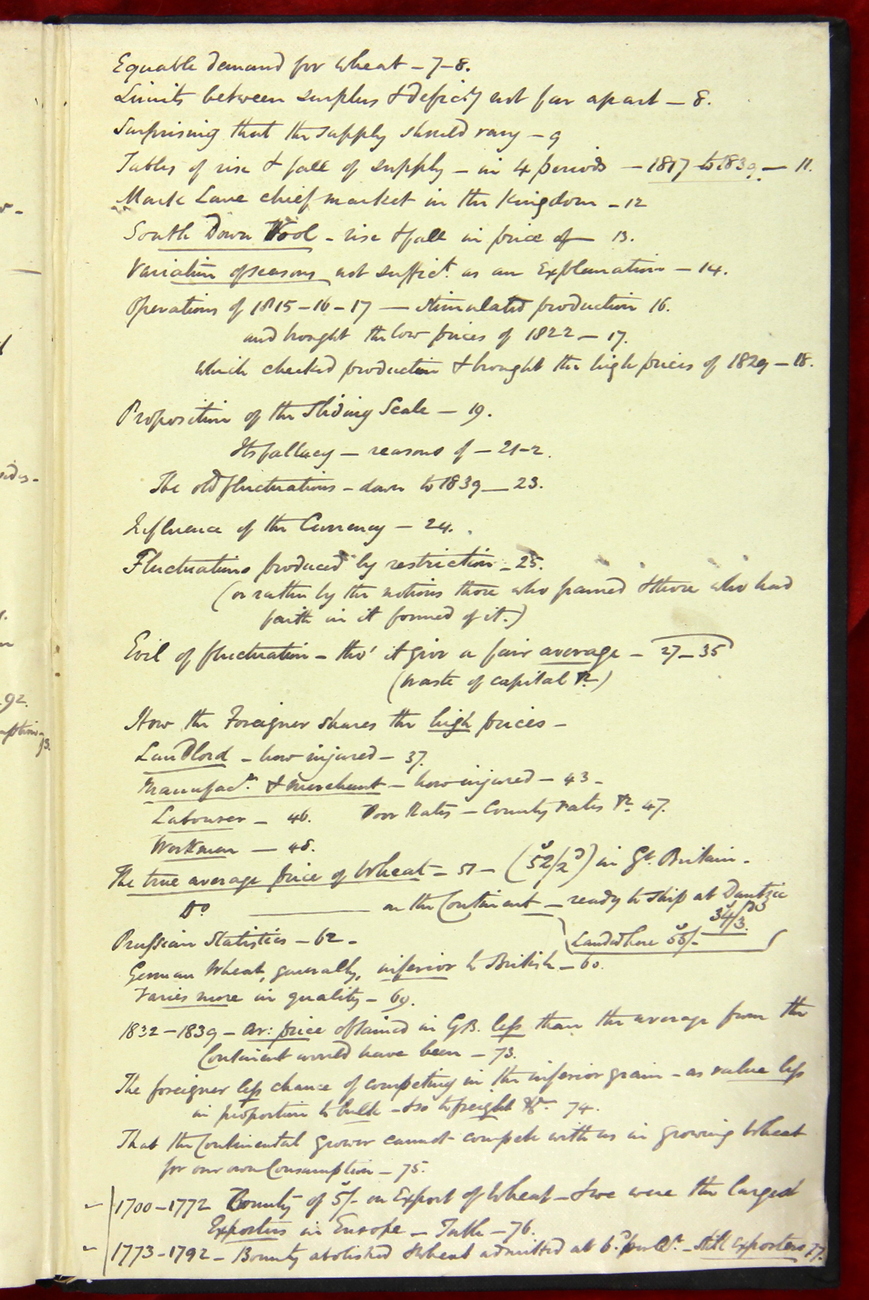 Equable demand for wheat - 7-8.
Limits between surplus & deficy not far apart - 8.
Surprising that the supply should vary - 9
Tables of rise & fall of supply - in 4 periods - 1817 to 1839. - 11.
Mark Lane chief market in the Kingdom - 12
South Down Wool - rise & fall in price of - 13.
Variation of seasons, not suffict. as an Explanation - 14.
Operations of 1815-16-17 - stimulated production 16.
and brought the low prices of 1822 - 17.
which checked production & brought the high prices of 1829 - 18.
Proposition of the Sliding Scale - 19.
Its fallacy - reasons of - 21-2.
The old fluctuations - down to 1839 - 23.
Influence of the Currency - 24.
Fluctuations produced by restriction - 25.
(or rather by the notions those who framed & those who had
faith in it formed of it.)
Evil of fluctuation - tho' it give a fair average - 27-35
(waste of capital &c)
How the Foreigner shares the high prices -
Landlord - how injured - 37.
Manufacr. & Merchant - how injured - 43 -
Labourer - 46. Poor Rates - County rates &c. 47.
Workman - 48.
The true average price of Wheat - 51 - (52s/2d) in Gt. Britain -
Do ——— on the Continent - ready to ship at Dantzic
34s/3d.
Prussian Statistics - 62 -
Landed here
German Wheat, generally, inferior to British - 60.
Varies more in quality - 60.
1832-1839 - av: price obtained in GB. less than the average from the
Continent would have been - 73.
The foreigner less chance of competing in the inferior grain - as value less
in proportion to bulk - & so to freight &c. 74.
That the Continental grower cannot compete with us in growing Wheat
for our own Consumption - 75.
1700-1772 Bounty of 5/- on Export of Wheat - & we were the largest
Exporters in Europe - Table - 76.
1773-1792 - Bounty abolished & wheat admitted at 6d. per Qr. - still exporters 77.